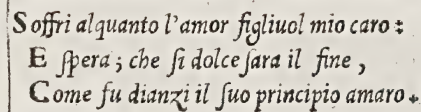 Soffri alquanto l'amor figliuol mio caro:
E ſpera; che ſi dolce ſara il fine,
Come fu dianzi il ſuo principio amaro.